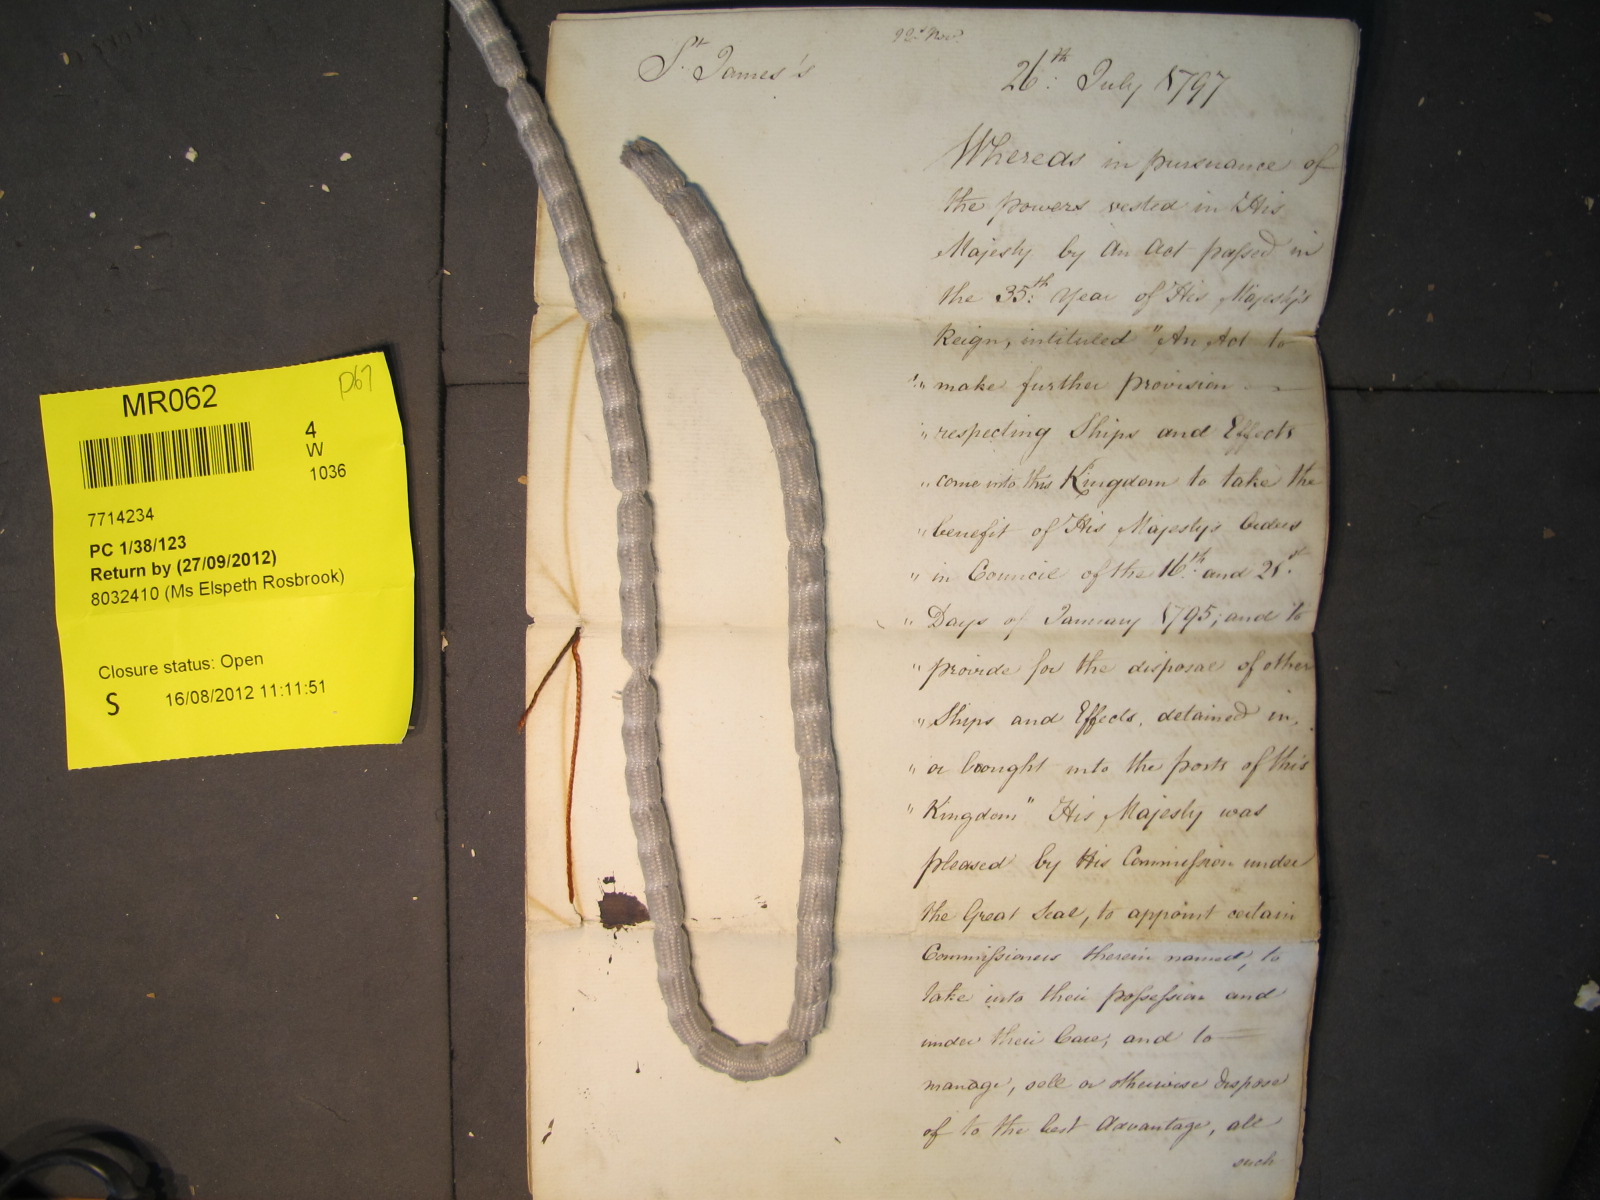 MR062
D67
4
W
1036
7714234
PC 1/38/123
Return by (27/09/2012)
8032410 (Ms Elspeth Rosbrook)
Closure status: Open
S 16/08/2012 11:11:51
St. James's
26th: July 1797
Whereas in pursuance of
the powers vested in His
Majesty by An Act passed in
the 35:th Year of His Majesty's
Reign, intituled "An Act to
" make further provision
" respecting Ships and Effects
" come into this Kingdom to take the
" benefit of His Majesty's Orders
" in Council of the 16th: and 21st:
" Days of January 1795; and to
" provide for the disposal of other
" Ships and Effects, detained in,
" or brought into the ports of this
" Kingdom" His Majesty was
pleased by His Commission under
the Great Seal, to appoint certain
Commissioners therein named, to
take into their possession and
under their Care, and to
manage, sell or otherwise dispose
of to the best Advantage, all
such